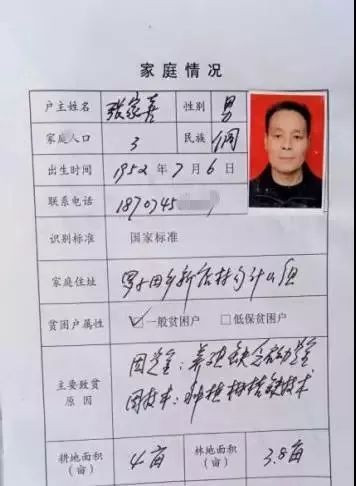 家庭情况
户主姓名 张家喜 性别 男
家庭人口 3 民族 侗
出生时间 1952 年 7 月 6 日
联系电话 1870745
识别标准 国家标准
家庭住址 田乡新店村
贫困户属性 ☑一般贫困户 □低保贫困户
因资金：养殖缺乏启动资金
主要致贫
因技术：种植柑桔缺技术
原因
耕地面积 4亩 林地面积 3.8亩
（亩） （亩）